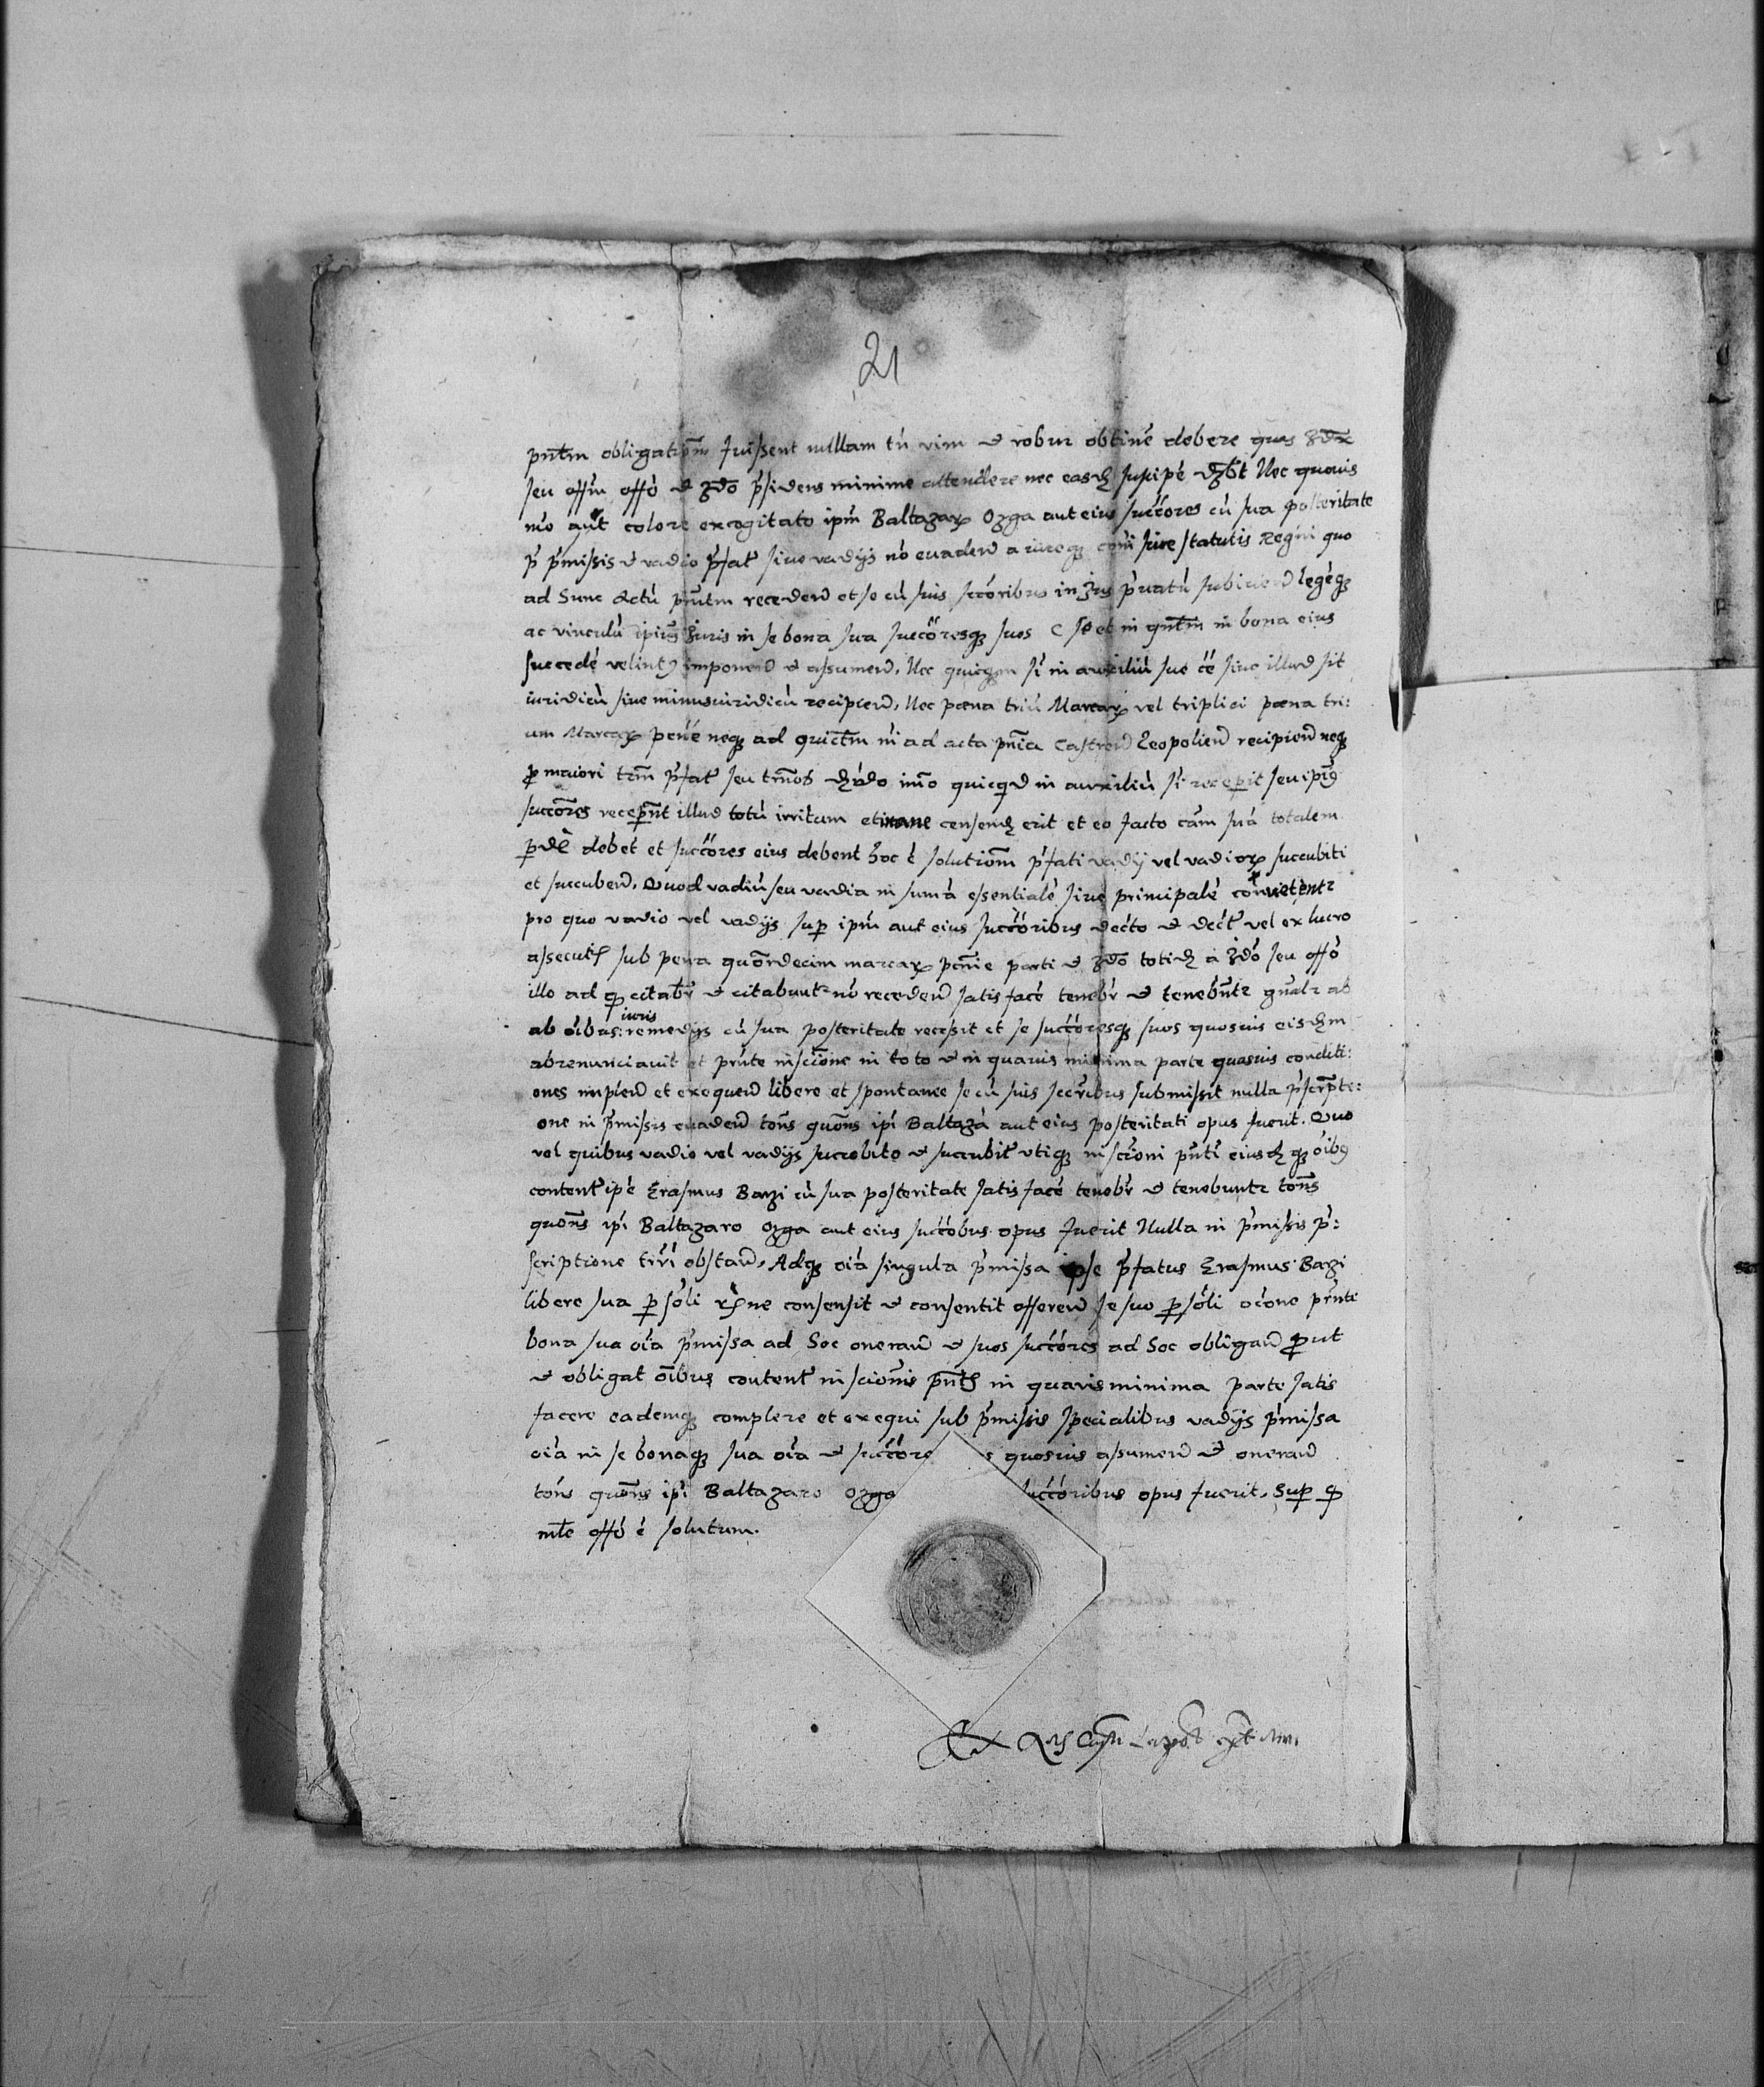 21
pntm obligatpm fuissent nullam tn vim et robur obtine debere quas
seu offm offo et Jdo psidens minime attendere nec easd suscipe Nec quovis
mo aut colore excogitato ipm Baltazar Ozga aut eius succores cu sua posteritate
p pmissis et vadio pfat sive vadijs no evadend a iureq coni sive statutis Regni quo
ad hunc actu pntm recedend et se cu suis sccoribus in Jus pvatu subiciend legeq
ac vinculu ipius Juris in se bona sua succoresq suos in bona eius
succede velint imponend et assumend, Nec quicqm si in auxiliu sue ce sive illud sit
iuridicu sive minus iuridicu recipiend, Nec pœna triu Marcar vel triplici pœna tri:
um Marcar neq ad quictm ni ad acta pnia Castren Leopolien recipiend neq
p maiori tm pfat seu imo quicqd in auxiliu si recepit seu ipius
succores recepnt illud totu irritum et inane censend erit et eo facto cam sua totalem
pde debet et succores eius debent hoc e solutiom pfati vadij vel vadior succubiti
et succubend. Quod vadiu seu vadia in suma essentiale sive principale convetentr
pro quo vadio vel vadijs sup ipm aut eius succoribus decto et dect vel ex lucro
assecut sub pena quordecim marcar parti et Jdo totid a Jdo seu offo
illo ad q citabr et citabuntr no recedend satis face tenebr et tenebuntr gnalr ab
ab oibus: iuris remedijs cu sua posteritate recessit et se succoresq suos quosvis eisdm
abrenunciavit et prnte inscione in toto et in quavis minima parte quasvis conditi:
ones implend et exequend libere et spontanee se cu suis sccribus submissit nulla pscrpte:
one in pmissis evadend tons quons ipi Baltaza aut eius posteritati opus fuerit. Quo
vel quibus vadio vel vadijs succobito et succubit utiq inscrioni pnti eiusd q oibus
content ipe Erasmus Barzi cu sua posteritate satis face tenebr et tenebuntr tons
quons ipi Baltazaro Ozga aut eius succobus opus fuerit Nulla in pmissis p:
scriptione tri obstan, Adq oia singula pmissa ipse pfatus Erasmus Barzi
libere sua psoli consensit et consentit offerend se suo psoli ocone prnte
bona sua oia pmissa ad hoc onerand et suos succores ad hoc obligand put
et obligat oibus content inscionis pnts in quavis minima parte satis
facere eademq complere et exequi sub pmissis specialibus vadijs pmissa
oia in se bonaq sua oia et succore s quosvis assumend et onerand
tons quons ipi Baltazaro Ozga succoribus opus fuerit. Sup q
mte offo e solutum.
Ex